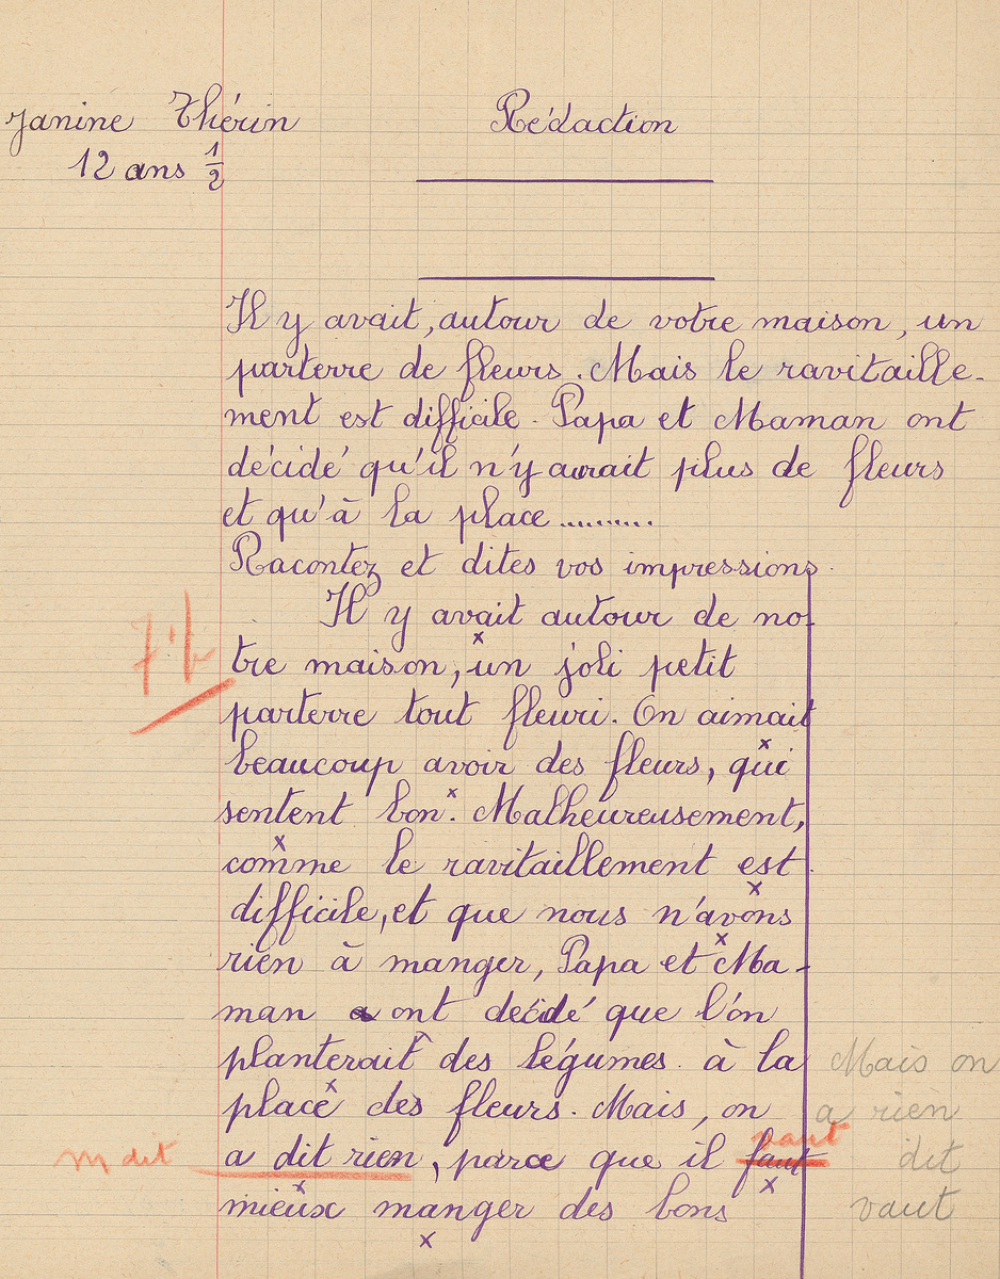 Janine Thérin
Rédaction
12 ans 1/2
Il y avait, autour de votre maison, un
parterre de fleurs. Mais le ravitaille-
ment est difficile. Papa et Maman ont
décidé qu'il n'y aurait plus de fleurs
et qu'à la place..........
Racontez et dites vos impressions.
Il y avait autour de no-
tre maison, un joli petit
parterre tout fleuri. On aimait
beaucoup avoir des fleurs, qui
sentent bon. Malheureusement,
comme le ravitaillement est
difficile, et que nous n'avons
rien à manger, Papa et Ma-
man ont décidé que l'on
planterait des légumes à la
place des fleurs. Mais, on
Mais on
a rien
vaut
m dit
a dit rien, parce que il faut
dit
mieux manger des bons
vaut